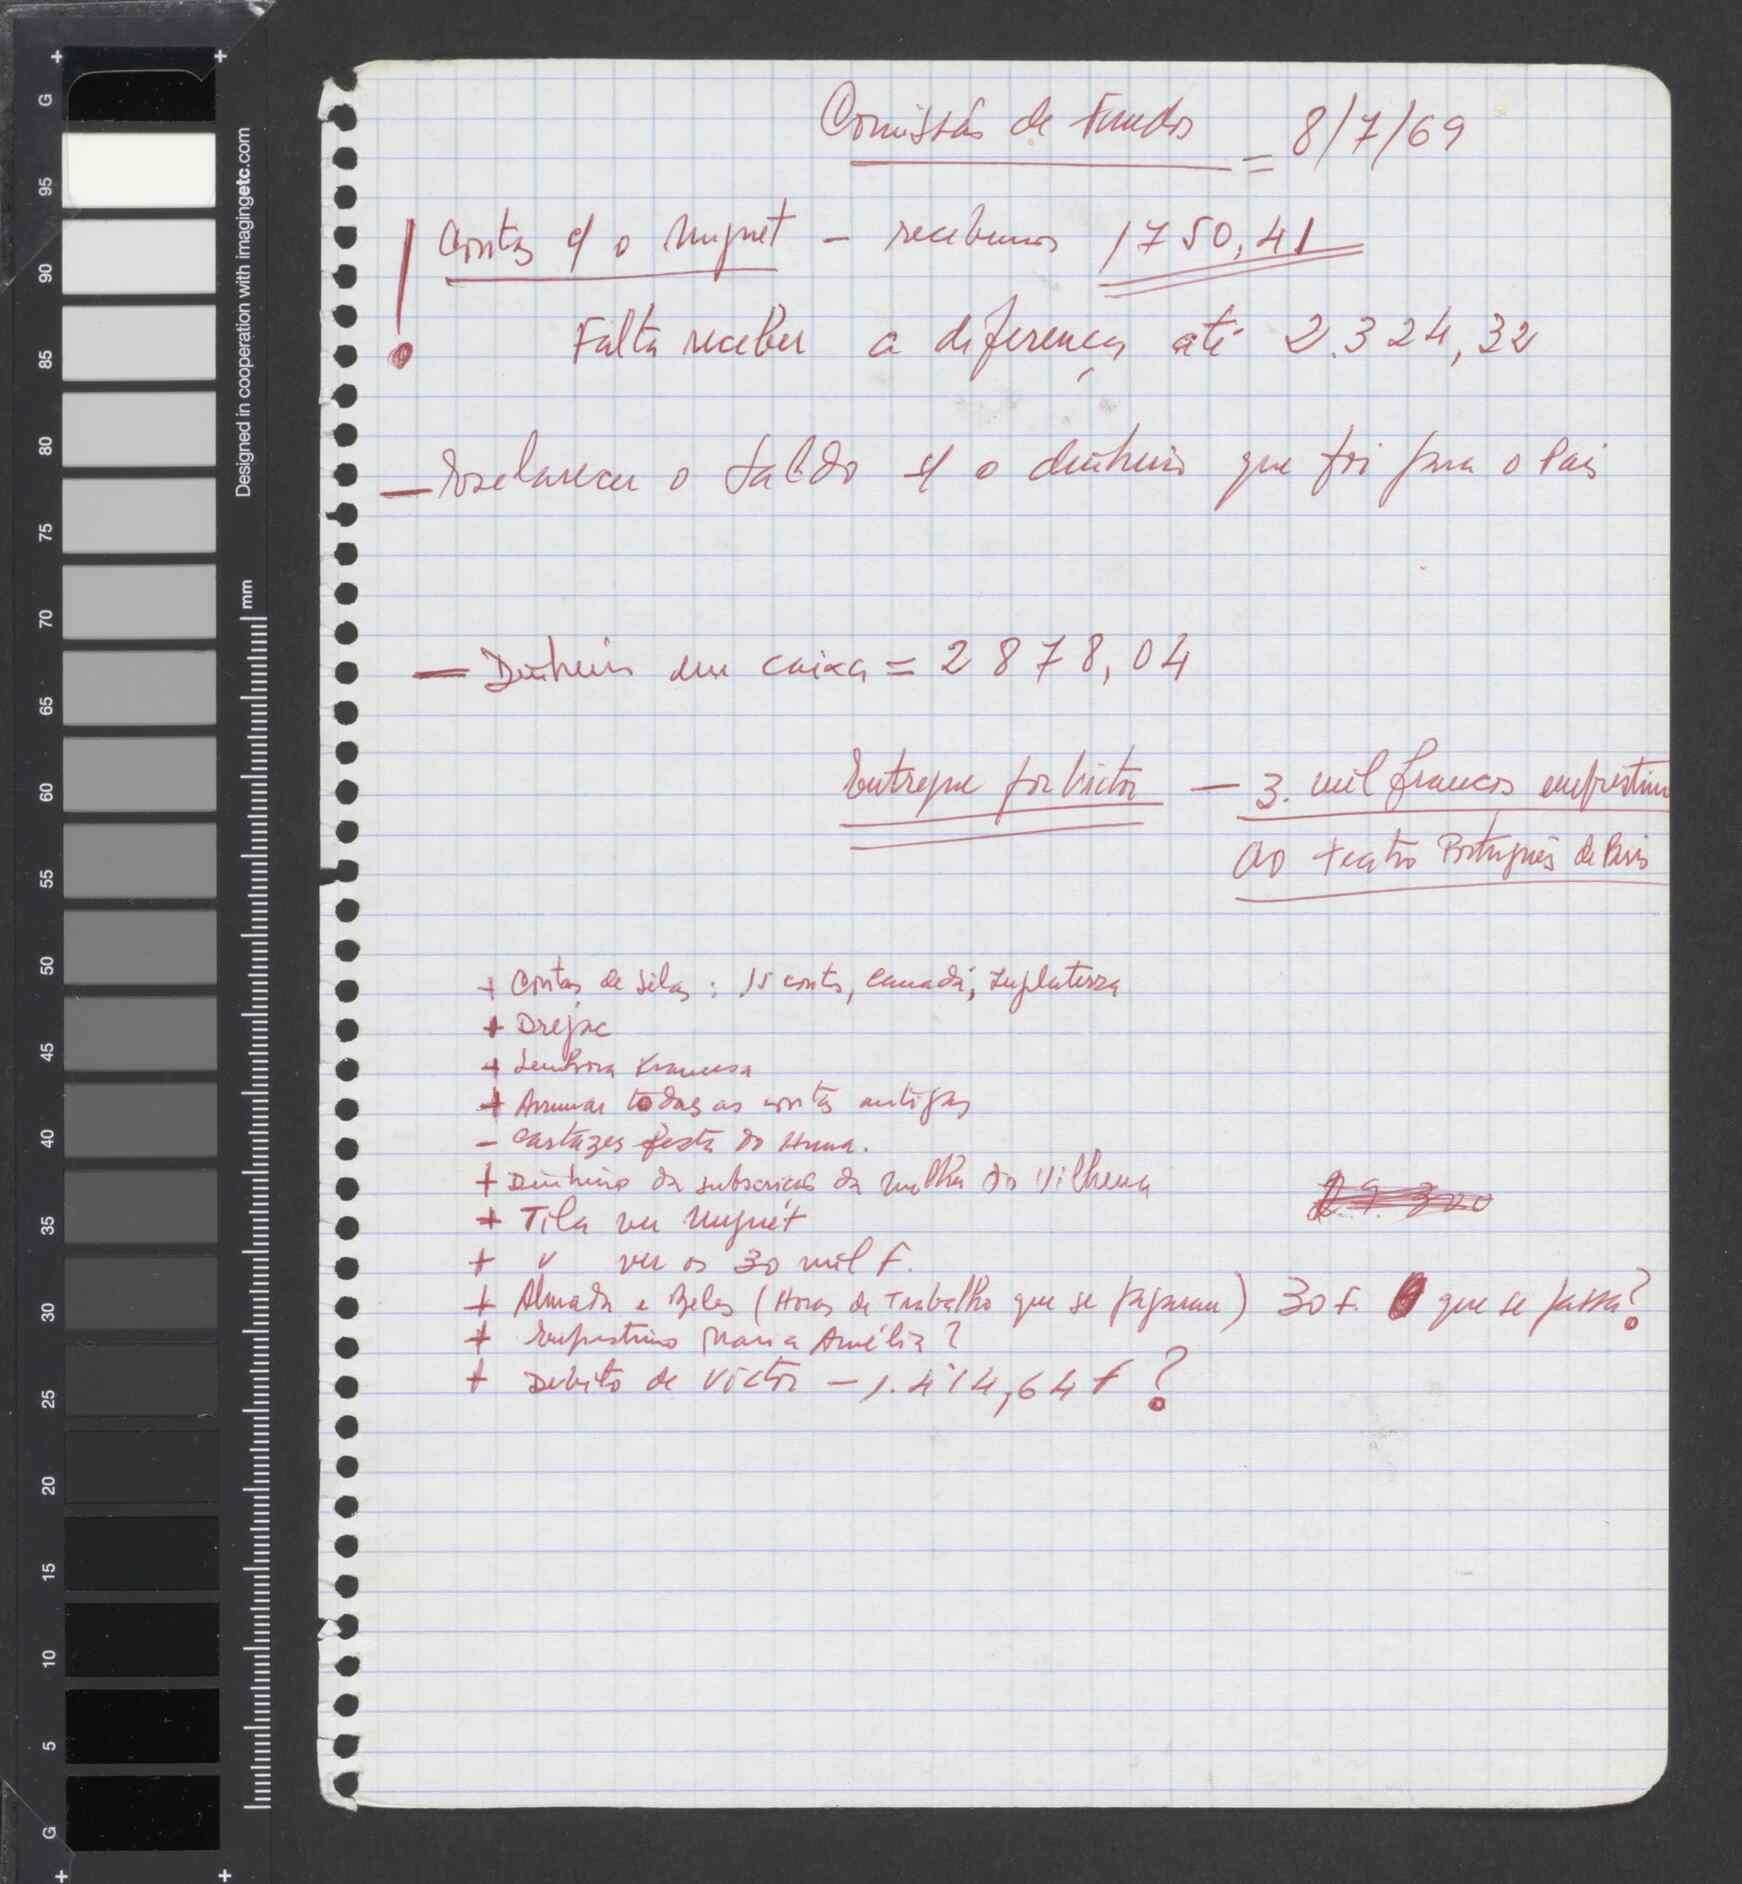 Comissão de Fundos = 8/7/69
Contas c/ o Huguet – recebemos 1750,41
Falta receber a diferença até 2.324,32
— Esclarecer o saldo c/ o dinheiro que foi para o Pais
— Dinheiro em caixa = 2878,04
Entregue por Victor — 3. mil francos emprestimo
ao teatro Português de Paris
+ Contas de Silas : 15 contos, Canadá, Inglaterra
+
+ Senhora Francesa
+ Arrumar todas as contas antigas
– Cartazes festa do Huma.
+ Dinheiro da subscrição da mulher do Vilhena
+ Tila ver Huguet
+ " ver os 30 mil F.
+ Almada e Belas (Horas de Trabalho que se pagaram) 30 F. que se passa?
+ Emprestimo Maria Amélia?
+ Debito de Victor – 1.414,64 f ?
G
95
90
85
80
75
70
65
60
55
50
45
40
35
30
25
20
15
10
5
G
Designed in cooperation with imagingetc.com
mm